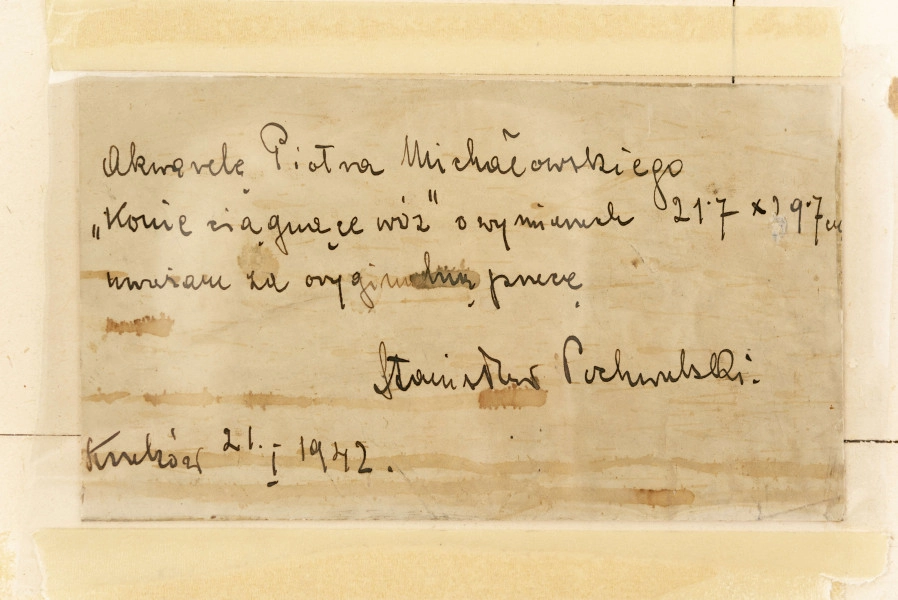 Akwarelę Piotra Michałowskiego
„Konie ciągnące wóz" o wymiarach 21·7 x 29·7 cm
uważam za oryginalną pracę
Stanisław Pochwalski.
Kraków 21. I 1942.